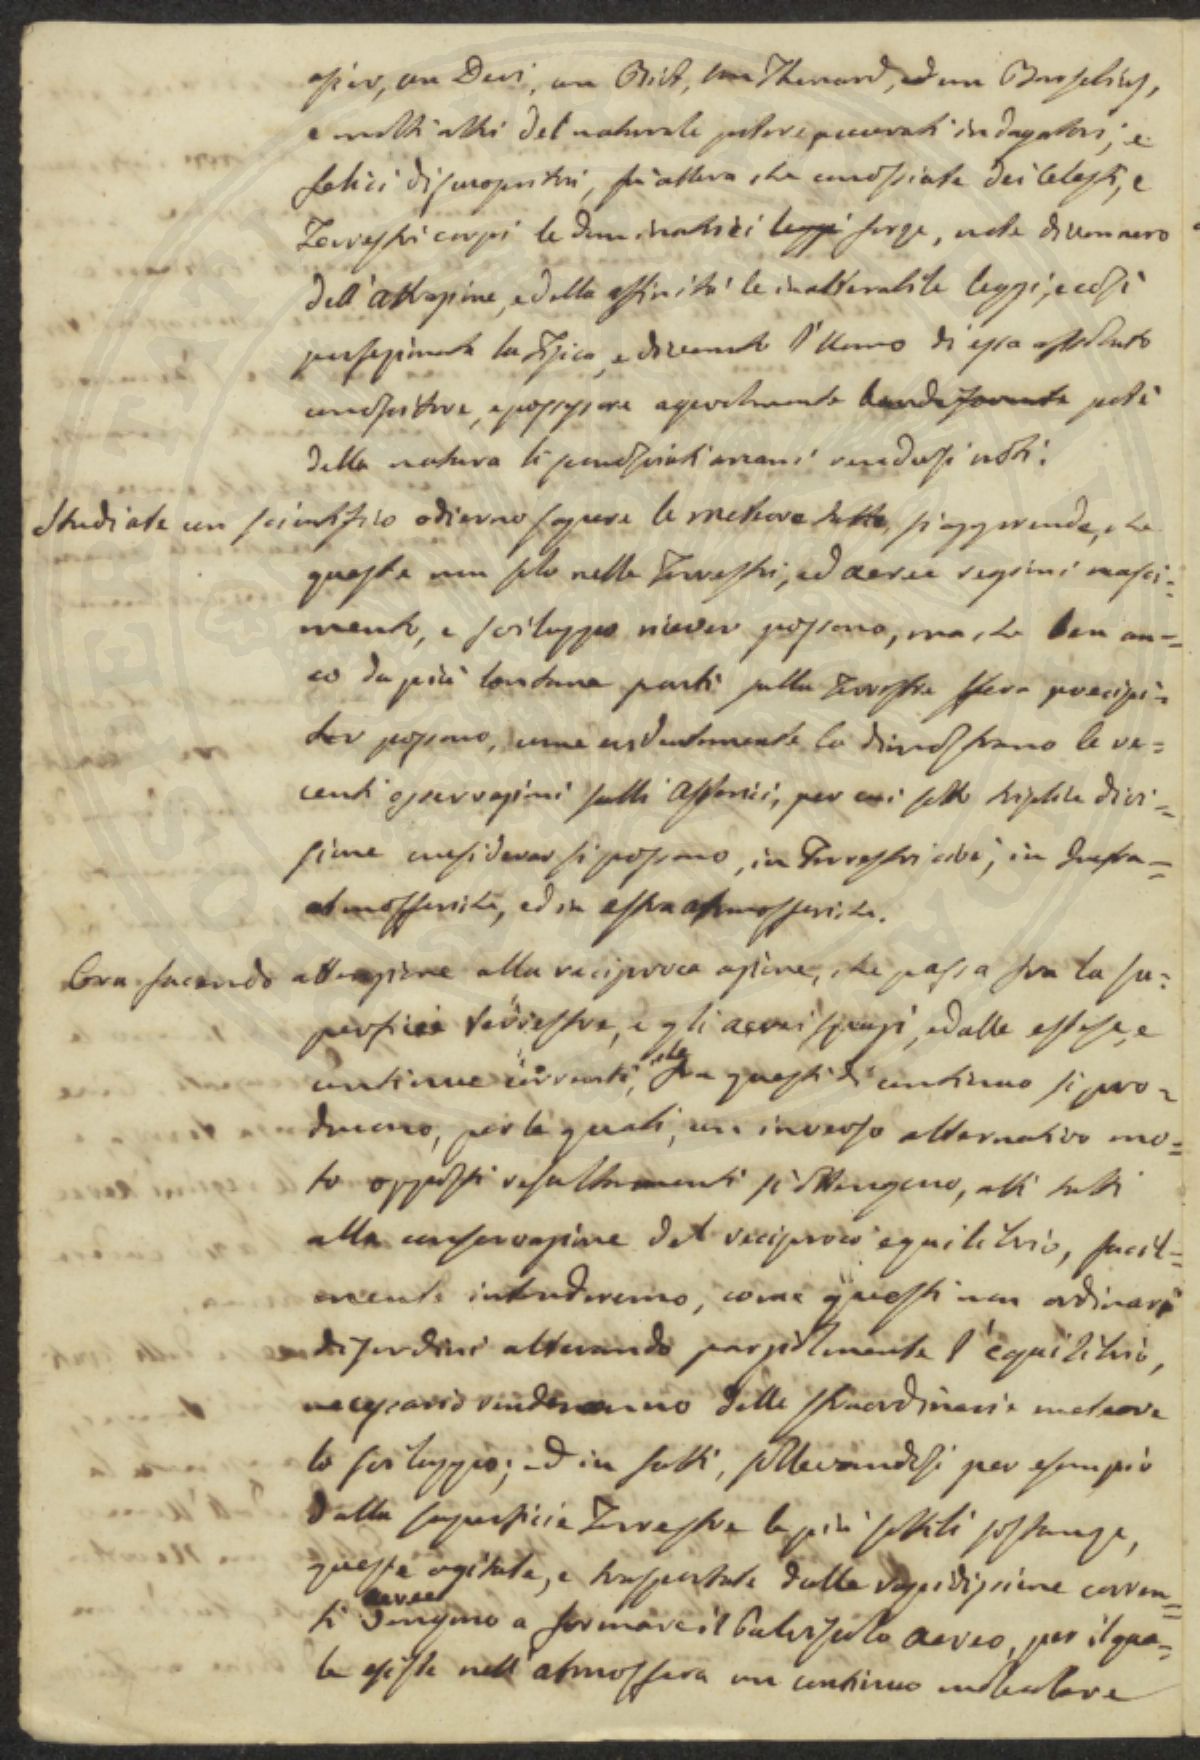 un Davi, un Biot, un Thenard, ed un Berzelius,
e molti altri del naturale potere accurati indagatori, e
felici discuopritori, fù allora che conosciute dei Celesti, e
Terrestri corpi le dominatrici leggi forze, note divennero
dell'Attrazione, e della affinità le inalterabile leggi, e così
perfezionata la Fisica, e divenuto l'Uomo di essa assoluto
conoscitore, e possessore agevolmente potè
della natura li arcani rendersi noti.
Studiate con scientifico odierno sapere le meteore tutte, si apprende, che
queste non solo nelle Terrestri, ed aeree regioni nasci-
mento, e sviluppo ricever possono, ma che ben an-
co da più lontane parti sulla Terrestre sfera precipi-
tar possono, come evidentemente lo dimostrano le re-
centi osservazioni sulli Asteroidi, per cui sotto triplice divi-
sione considerar si possono, in Terrestri cioè, in Infra-
atmosferiche, ed in estra atmosferiche.
Ora facendo attenzione alla reciproca azione, che passa fra la su-
perficie Terrestre, e gli aerei spazi, ed alle estese, e
continue correnti, che fra questi di continuo si pro-
ducono, per le quali, con inverso alternativo mo-
to opposti resultamenti si ottengono, atti tutti
alla conservazione del reciproco equilibrio, facil-
mente intenderemo, come questi non ordinari
disordini alterando parzialmente l'equilibrio,
necessario renderanno delle straordinarie meteore
lo sviluppo; ed in fatti, sollevandosi per esempio
dalla superficie Terrestre le più sottili sostanze,
queste agitate, e trasportate dalle rapidissime corren-
ti aeree vengono a formare il Pulviscolo aereo, per il qua-
le esiste nell'atmosfera un continuo molecolare